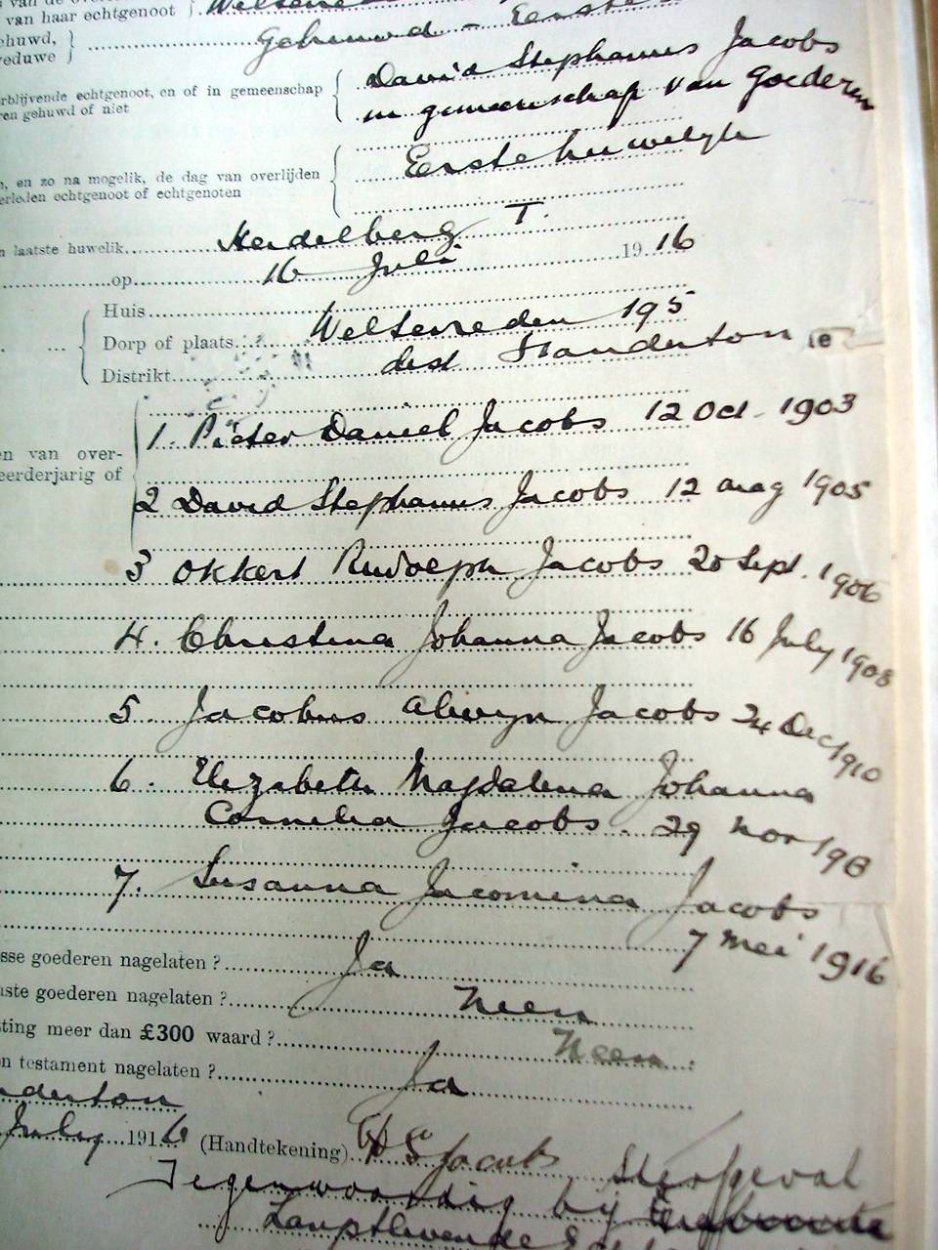 van haar echtgenoot } Weltevreden
ehuwd,
eduwe } Gehuwd - Eerste
David Stephanus Jacobs
rblijvende echtgenoot, en of in gemeenschap
en gehuwd of niet
in gemeenschap van goederen
Eerste huwelyk
, en zo na mogelik, de dag van overlijden
erleden echtgenoot of echtgenoten
n laatste huwelik Heidelberg T.
op 16 Juli 1916
Huis
Dorp of plaats Weltevreden 195
Distrikt dist Standerton
1. Pieter Daniel Jacobs 12 Oct. 1903
en van over-
eerderjarig of
2 David Stephanus Jacobs 12 1905
3 Okkert Rudolph Jacobs 20 Sept. 1906
4. Christina Johanna Jacobs 16 July 1908
5. Jacobus Alwyn Jacobs 24 Dec 1910
6. Elizabeth Magdalena Johanna
Cornelia Jacobs. 29 Nov 1913
7. Susanna Jacomina Jacobs
7 Mei 1916
sse goederen nagelaten ? Ja
aste goederen nagelaten ? Neen
ting meer dan £300 waard ? Neen
n testament nagelaten ? Ja
derton
July 1916 (Handtekening) D S Jacobs
Tegenwoordig by Sterfgeval